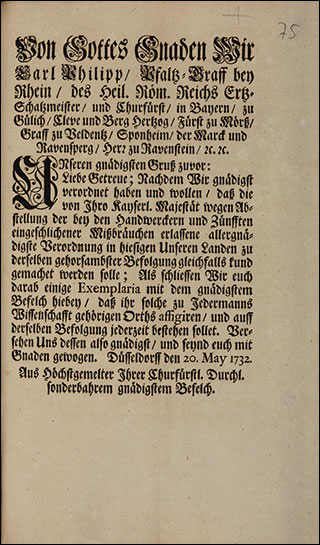 75
Von Gottes Gnaden Wir
Carl Philipp/ Pfaltz-Graff bey
Rhein/ des Heil. Röm. Reichs Ertz-
Schatzmeister/ und Churfürst/ in Bayern/ zu
Gülich/ Cleve und Berg Hertzog/ Fürst zu Mörß/
Graff zu Veldentz/ Sponheim/ der Marck und
Ravensperg/ Herr zu Ravenstein/ ꝛc. ꝛc.
UNseren gnädigsten Gruß zuvor:
Liebe Getreue; Nachdem Wir gnädigst
verordnet haben und wollen/ daß die
von Ihro Kayserl. Majestät wegen Ab-
stellung der bey den Handwerckern und Zünfften
eingeschlichener Mißbräuchen erlassene allergnä-
digste Verordnung in hiesigen Unseren Landen zu
derselben gehorsambster Befolgung gleichfalls kund
gemachet werden solle; Als schliessen Wir euch
darab einige Exemplaria mit dem gnädigstem
Befelch hiebey/ daß ihr solche zu Jedermanns
Wissenschafft gehörigen Orths affigiren/ und auff
derselben Befolgung jederzeit bestehen sollet. Ver-
sehen Uns dessen also gnädigst/ und seynd euch mit
Gnaden gewogen. Düsseldorff den 20. May 1732.
Aus Höchstgemelter Ihrer Churfürstl. Durchl.
sonderbahrem gnädigstem Befelch.